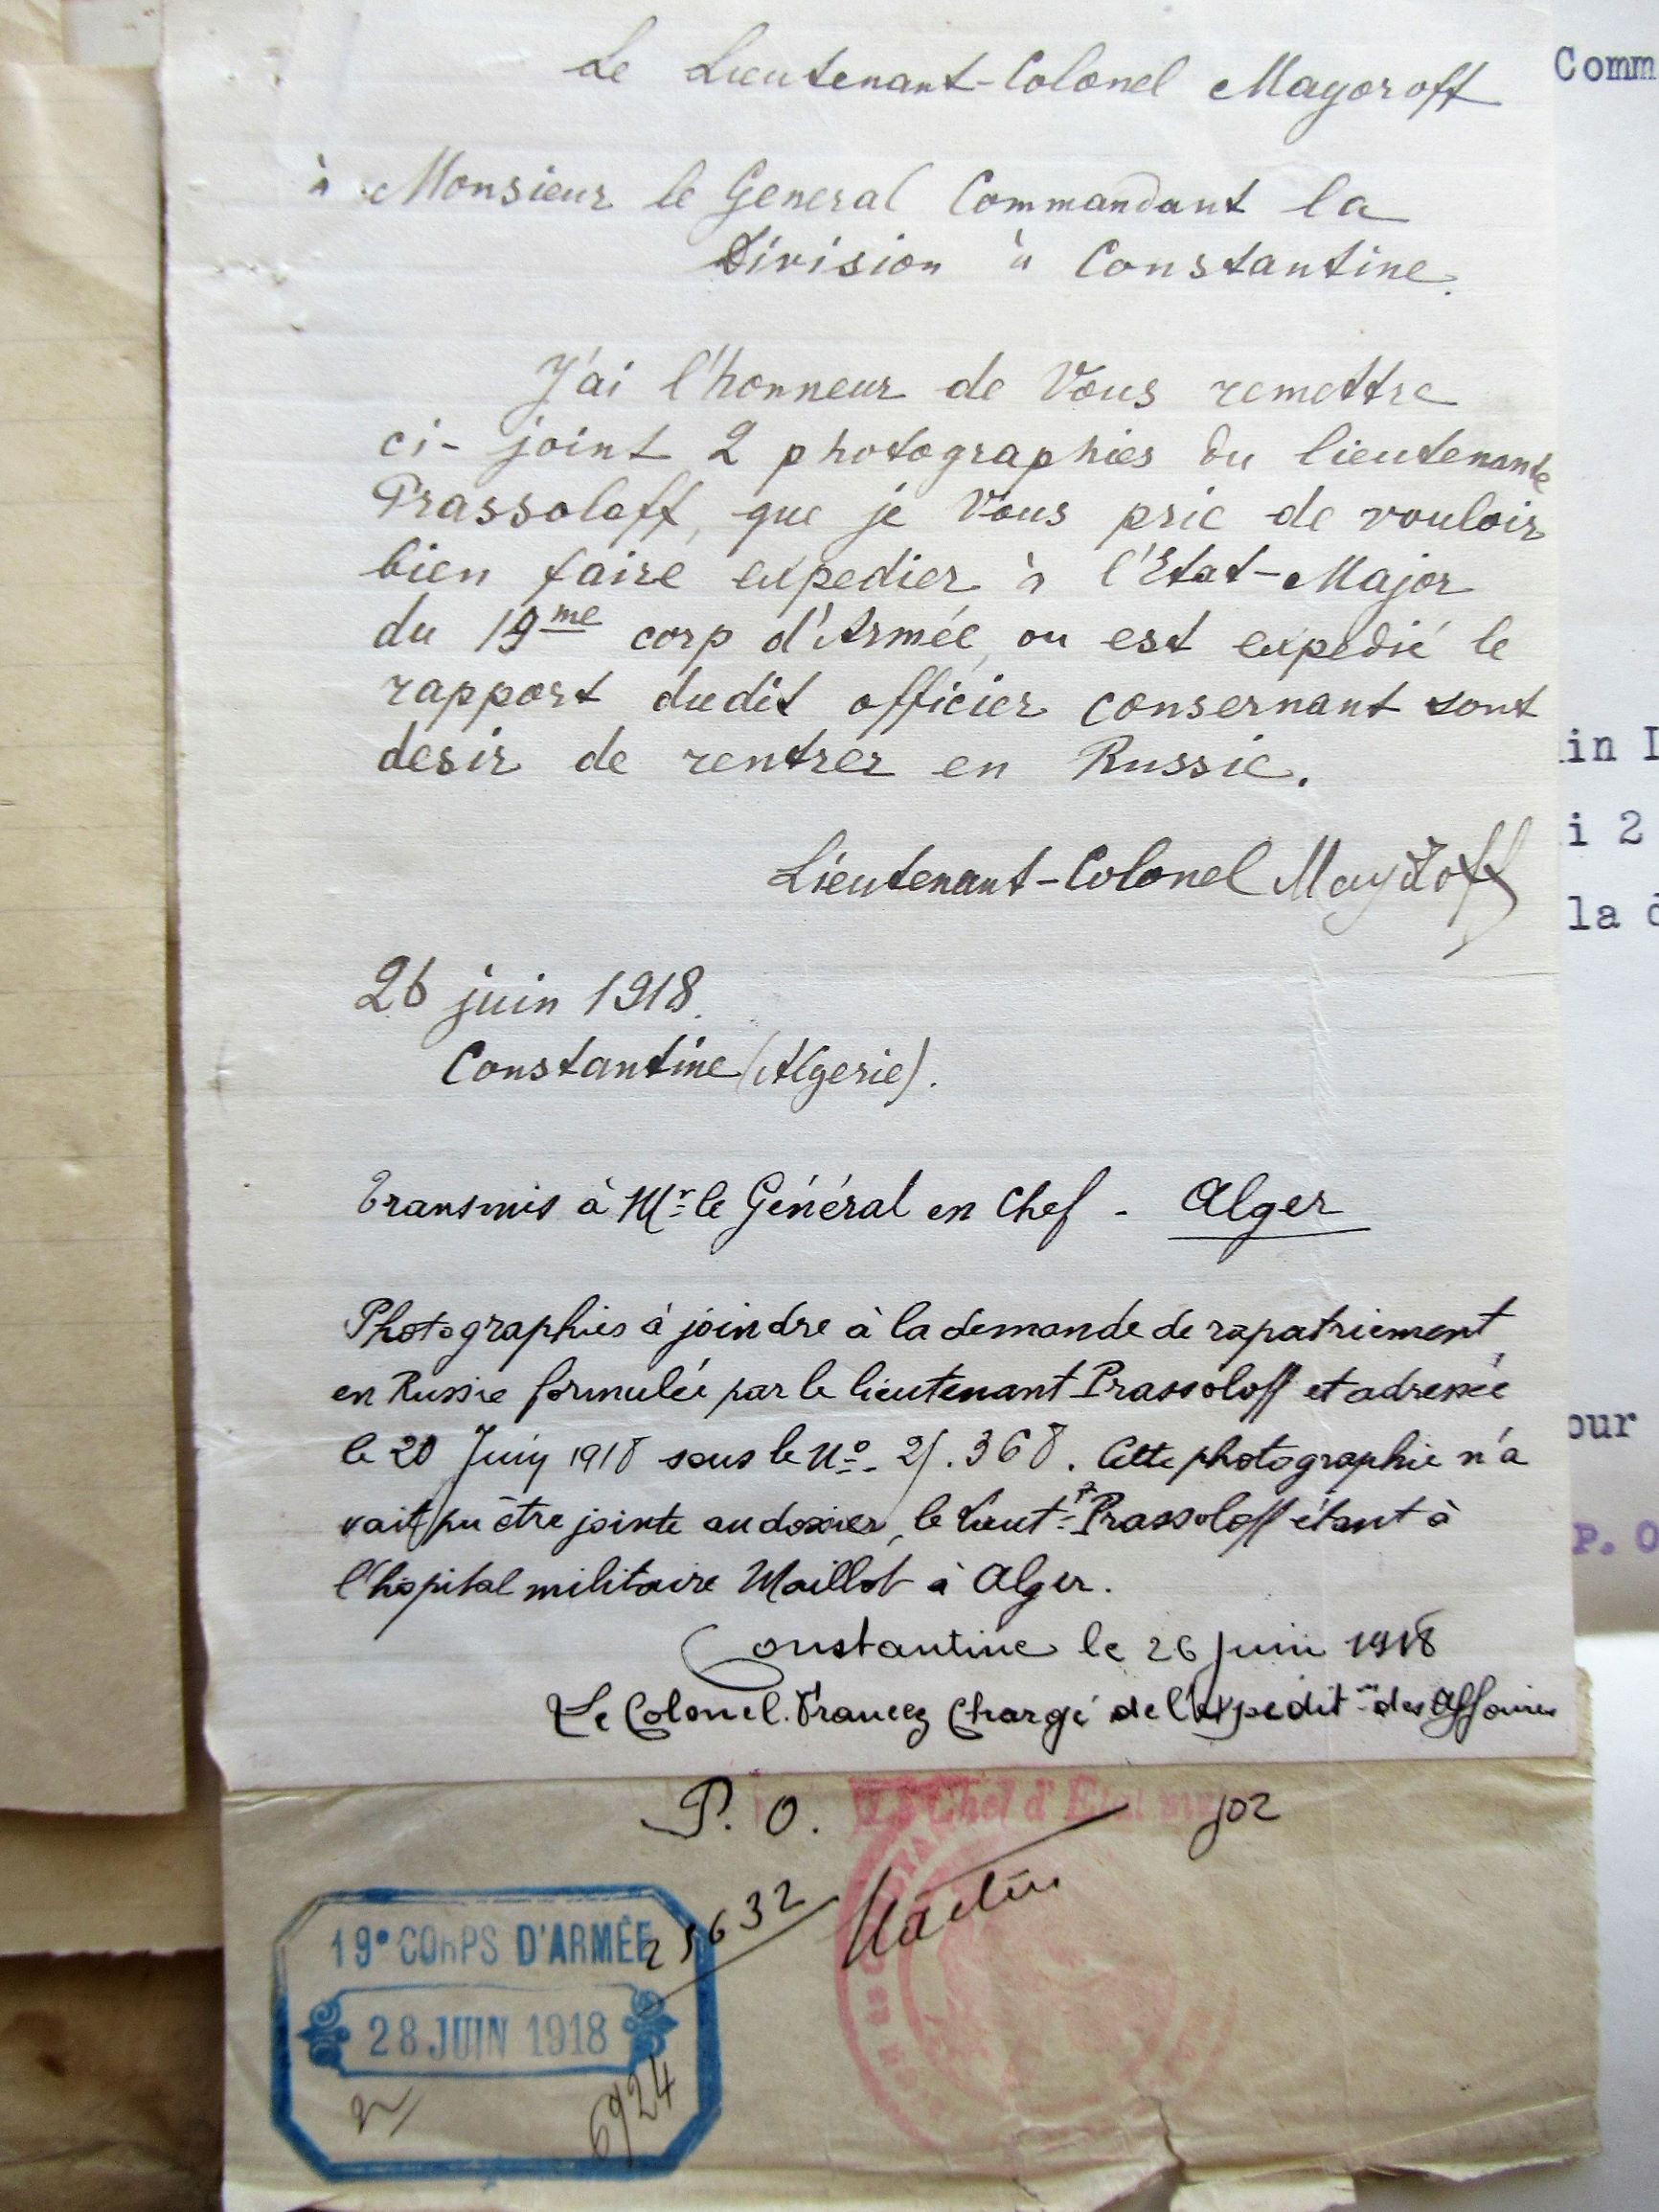 Le Lieutenant-Colonel Mayoroff
à Monsieur le General Commandant la
Division à Constantine.
J'ai l'honneur de Vous remettre
ci-joint 2 photographies du lieutenante
Prassoloff, que je Vous prie de vouloir
bien faire expedier à l'Etat-Major
du 19me corp d'Armée, ou est expedié le
rapport dudit officier consernant sont
desir de rentrer en Russie.
Lieutenant-Colonel Mayoroff
26 juin 1918.
Constantine (Algerie).
Transmis à Mr le Général en Chef - Alger
Photographies à joindre à la demande de rapatriement
en Russie formulée par le lieutenant Prassoloff et adressée
le 20 Juin 1918 sous le No. 368. Cette photographie n'a
vait pu être jointe au dossier, le Lieutt Prassoloff étant à
l'hôpital militaire Maillot à Alger.
Constantine le 26 Juin 1918
Le Colonel Francez Chargé de l'Expediton des Affaires
P. O. Le Chef d'Etat major
25632
19e CORPS D'ARMÉE
28 JUIN 1918
6924
Comm
in I
i 2
la d
our
P. O